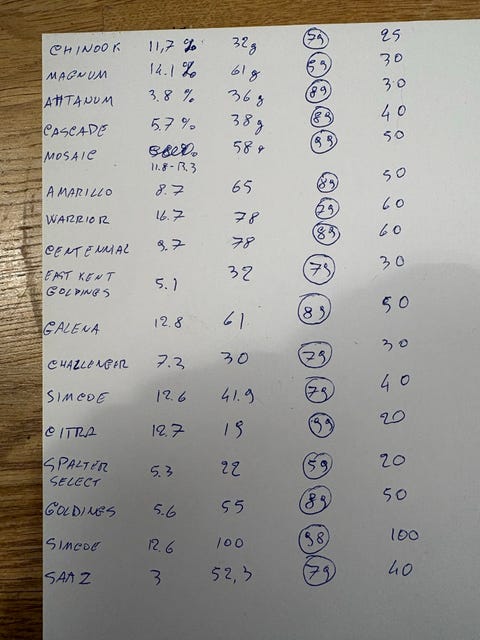 CHINOOK 11,7 % 32g 59 25
MAGNUM 14.1 % 61g 59 30
AHTANUM 3.8 % 36g 89 30
CASCADE 5.7 % 38g 89 40
MOSAIC 58g 99 50
11.8-13.3
AMARILLO 8.7 65 89 50
WARRIOR 16.7 78 79 60
CENTENNIAL 9.7 78 89 60
EAST KENT 5.1 32 79 30
GOLDINGS
GALENA 12.8 61 89 50
CHALLENGER 7.2 30 79 30
SIMCOE 12.6 41.9 79 40
CITRA 12.7 19 99 20
SPALTER 5.3 22 59 20
SELECT
GOLDINGS 5.6 55 89 50
SIMCOE 12.6 100 98 100
SAAZ 3 52,3 79 40